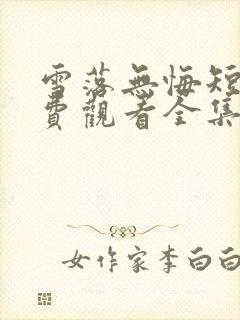 雪落無悔短
費觀看全集
女作家李白白